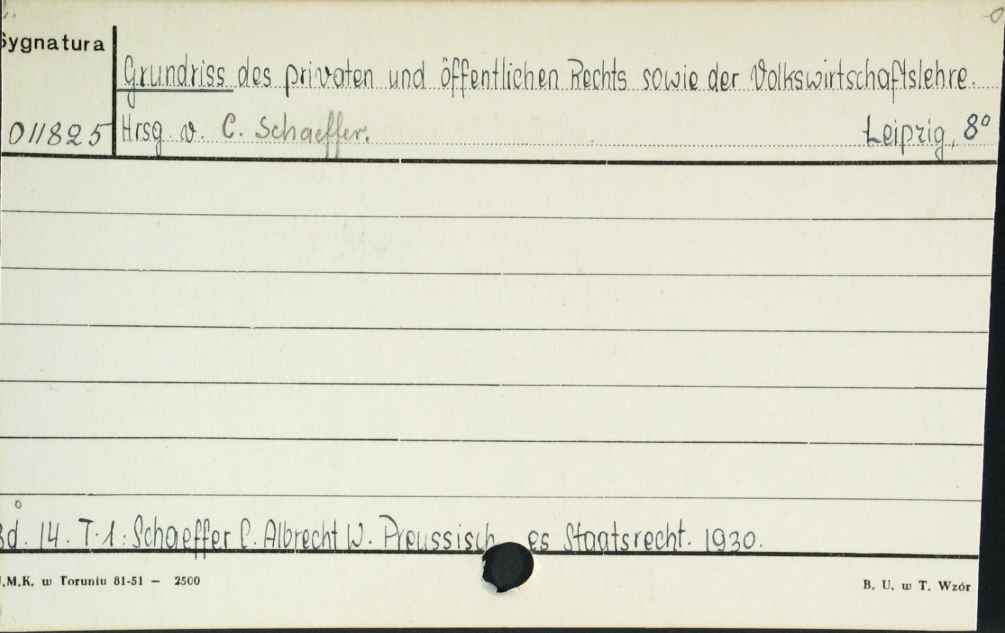 Sygnatura
Grundriss des privaten und öffentlichen Rechts sowie der Volkswirtschaftslehre.
011825 Hrsg. v. C. Schaeffer. Leipzig, 8°
Bd. 14. T. 1: Schaeffer C. Albrecht W. Preussisch es Staatsrecht. 1930.
U.M.K. w Toruniu 81-51 — 2500 B. U. w T. Wzór